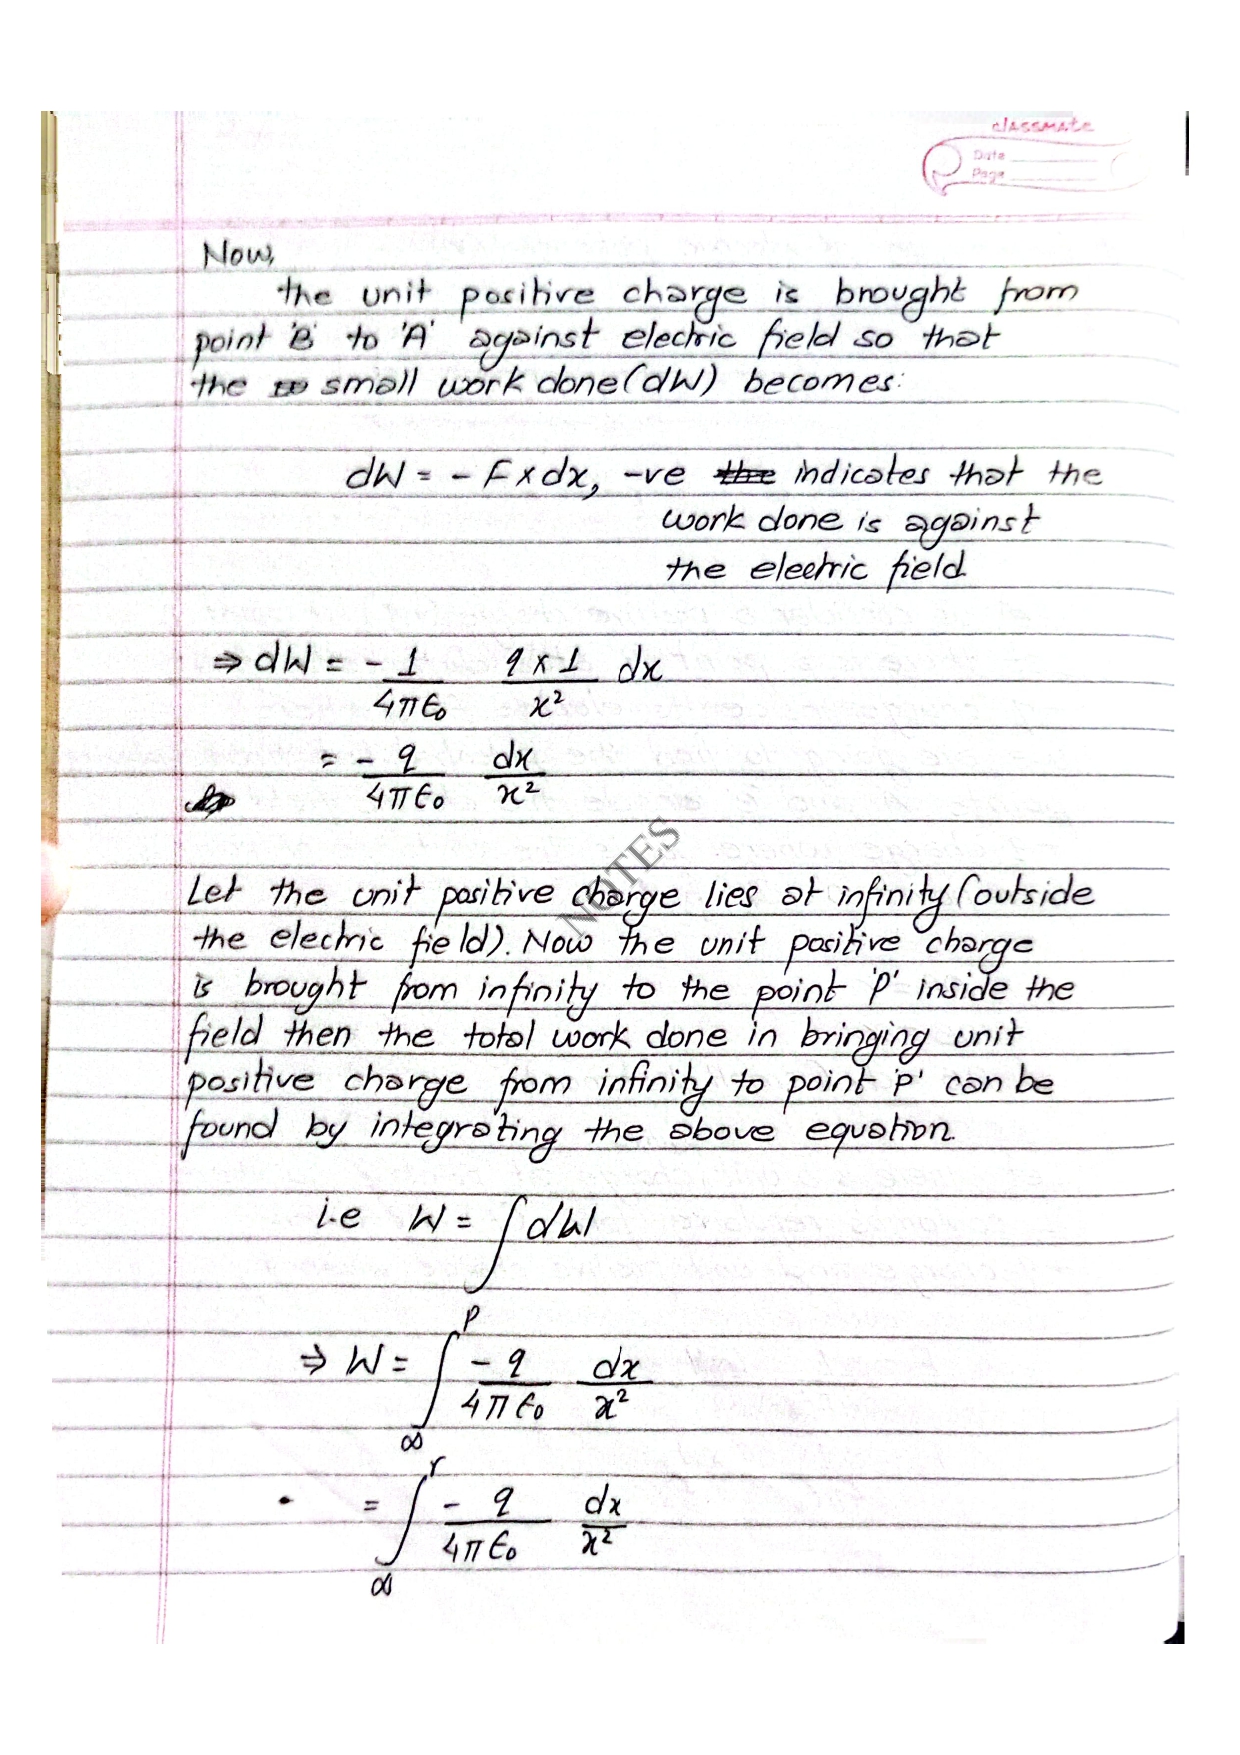 classmate
Date
Page
Now,
the unit positive charge is brought from
point 'B' to 'A' against electric field so that
the small work done (dW) becomes:
dW = - F x dx, -ve the indicates that the
work done is against
the electric field
⇒ dW = -1/4πϵ₀ q x 1/x² dx
= -q/4πϵ₀ dx/x²
NOTES
Let the unit positive charge lies at infinity (outside
the electric field). Now the unit positive charge
is brought from infinity to the point 'P' inside the
field then the total work done in bringing unit
positive charge from infinity to point 'P' can be
found by integrating the above equation.
i.e W = ∫dW
⇒ W = ∫_∞^P -q/4πϵ₀ dx/x²
= ∫_∞^r -q/4πϵ₀ dx/x²